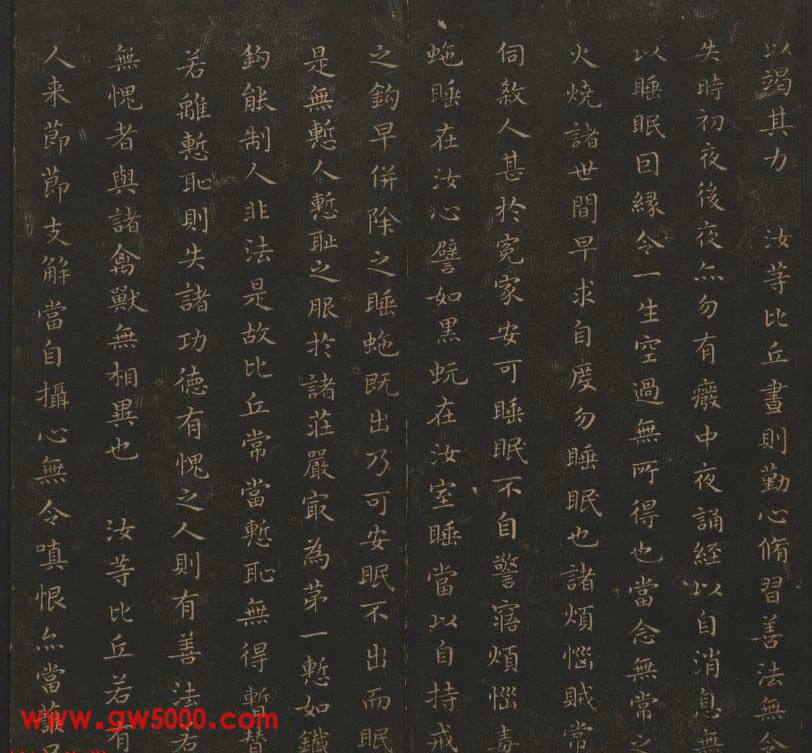 以竭其力　汝等比丘晝則勤心脩習善法無令
失時初夜後夜亦勿有癈中夜誦經以自消息無
以睡眠因緣令一生空過無所得也當念無常之
火燒諸世間早求自度勿睡眠也諸煩惱賊常
伺煞人甚於寃家安可睡眠不自警寤煩惱毒
虵睡在汝心譬如黑蚖在汝室睡當以自持戒
之鈎早併除之睡虵既出乃可安眠不出而眠
是無慙人慙耻之服於諸莊嚴冣為苐一慙如鐵
鈎能制人非法是故比丘常當慙恥無得暫替
若離慙恥則失諸功德有愧之人則有善法若
無愧者與諸禽獸無相異也　汝等比丘若有
人来節節支解當自攝心無令嗔恨亦當護口
www.gw5000.com